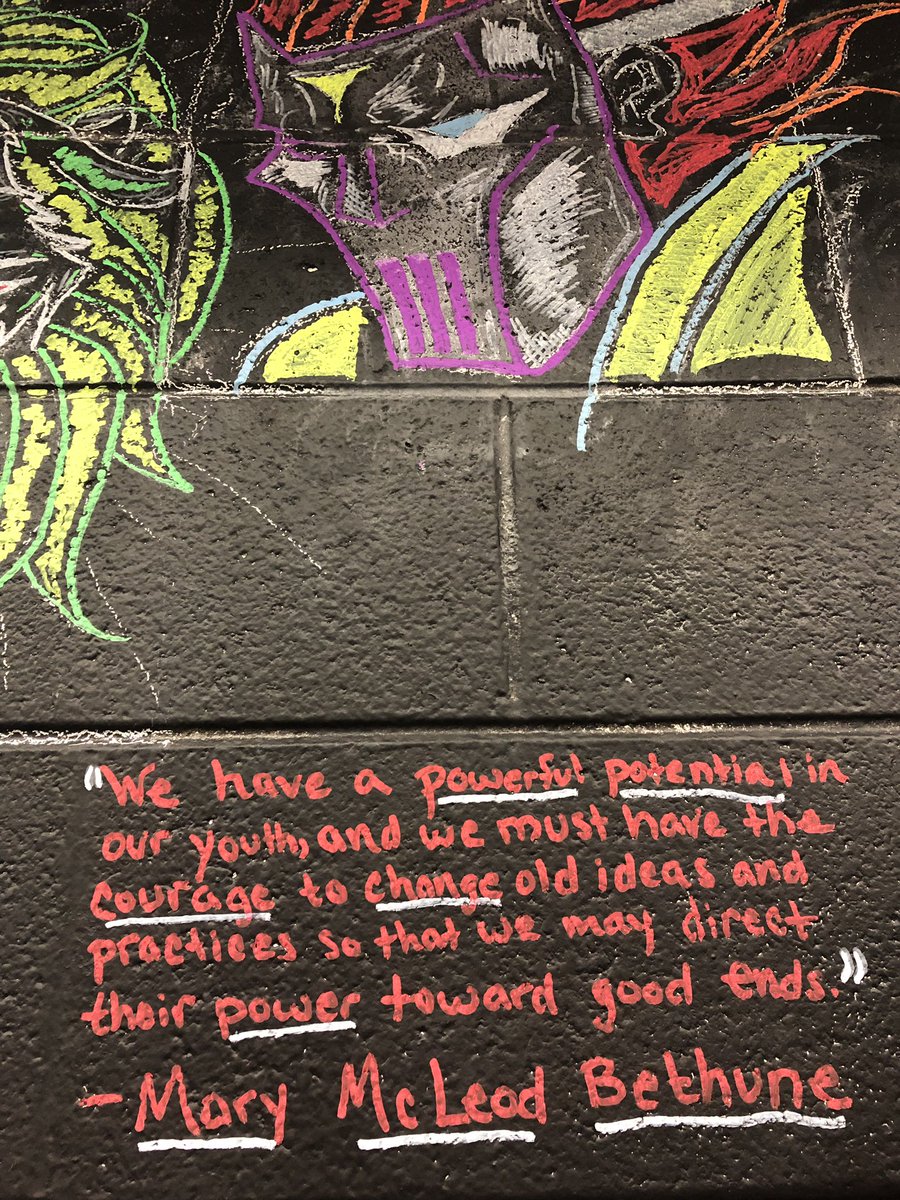 "We have a powerful potential in
our youth, and we must have the
courage to change old ideas and
practices so that we may direct
their power toward good ends."
- Mary McLeod Bethune